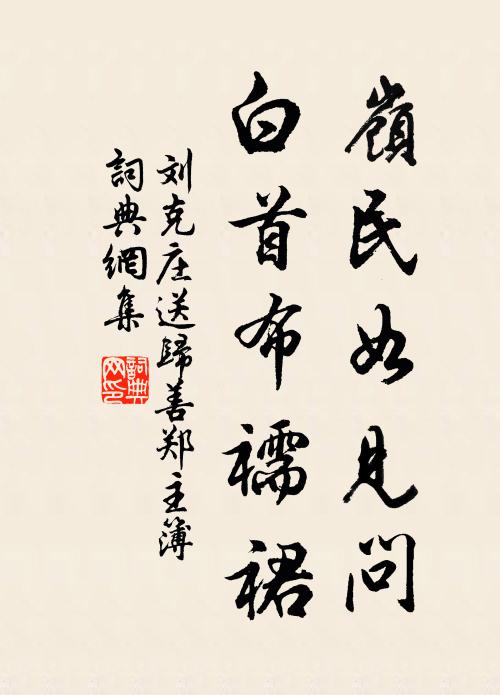 嶺民如見問
白首布襦裙
刘克庄送歸善郑主簿
詞典網集
詞典网印